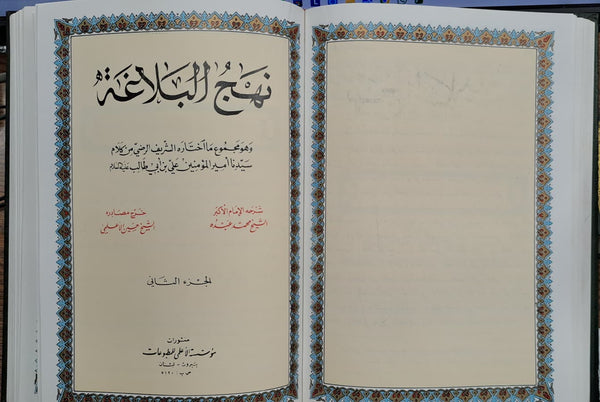 نهج البلاغة
وهو مجموع ما اختاره الشريف الرضي من كلام
سيّدنا أمير المؤمنين علي بن أبي طالب عليه السلام
شرحه الإمام الأكبر
الشيخ محمد عبده
خرج مصادره
الشيخ حسين الأعلمي
الجزء الثاني
منشورات
مؤسسة الأعلمي للمطبوعات
بيروت - لبنان
ص.ب ٧١٢٠